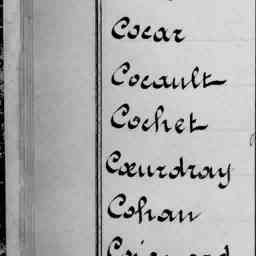 Cocar
Cocault
Cochet
Cœurdray
Cohan